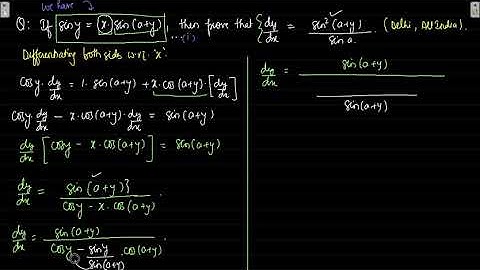 We have
Q: If sin y = x sin(a+y), then prove that dy/dx = sin²(a+y)/sin a. (Delhi, All India).
...(i)
Differentiating both sides w.r.t. 'x'
cos y · dy/dx = 1 · sin(a+y) + x · cos(a+y) · [dy/dx]
cos y · dy/dx − x · cos(a+y) · dy/dx = sin(a+y)
dy/dx [cos y − x · cos(a+y)] = sin(a+y)
dy/dx = sin(a+y)} / cos y − x · cos(a+y)
dy/dx = sin(a+y) / cos y − sin y/sin(a+y) · cos(a+y)
dy/dx = sin(a+y)
sin(a+y)